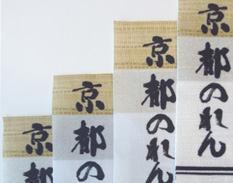 京都のれん
京都のれん
京都の
京都